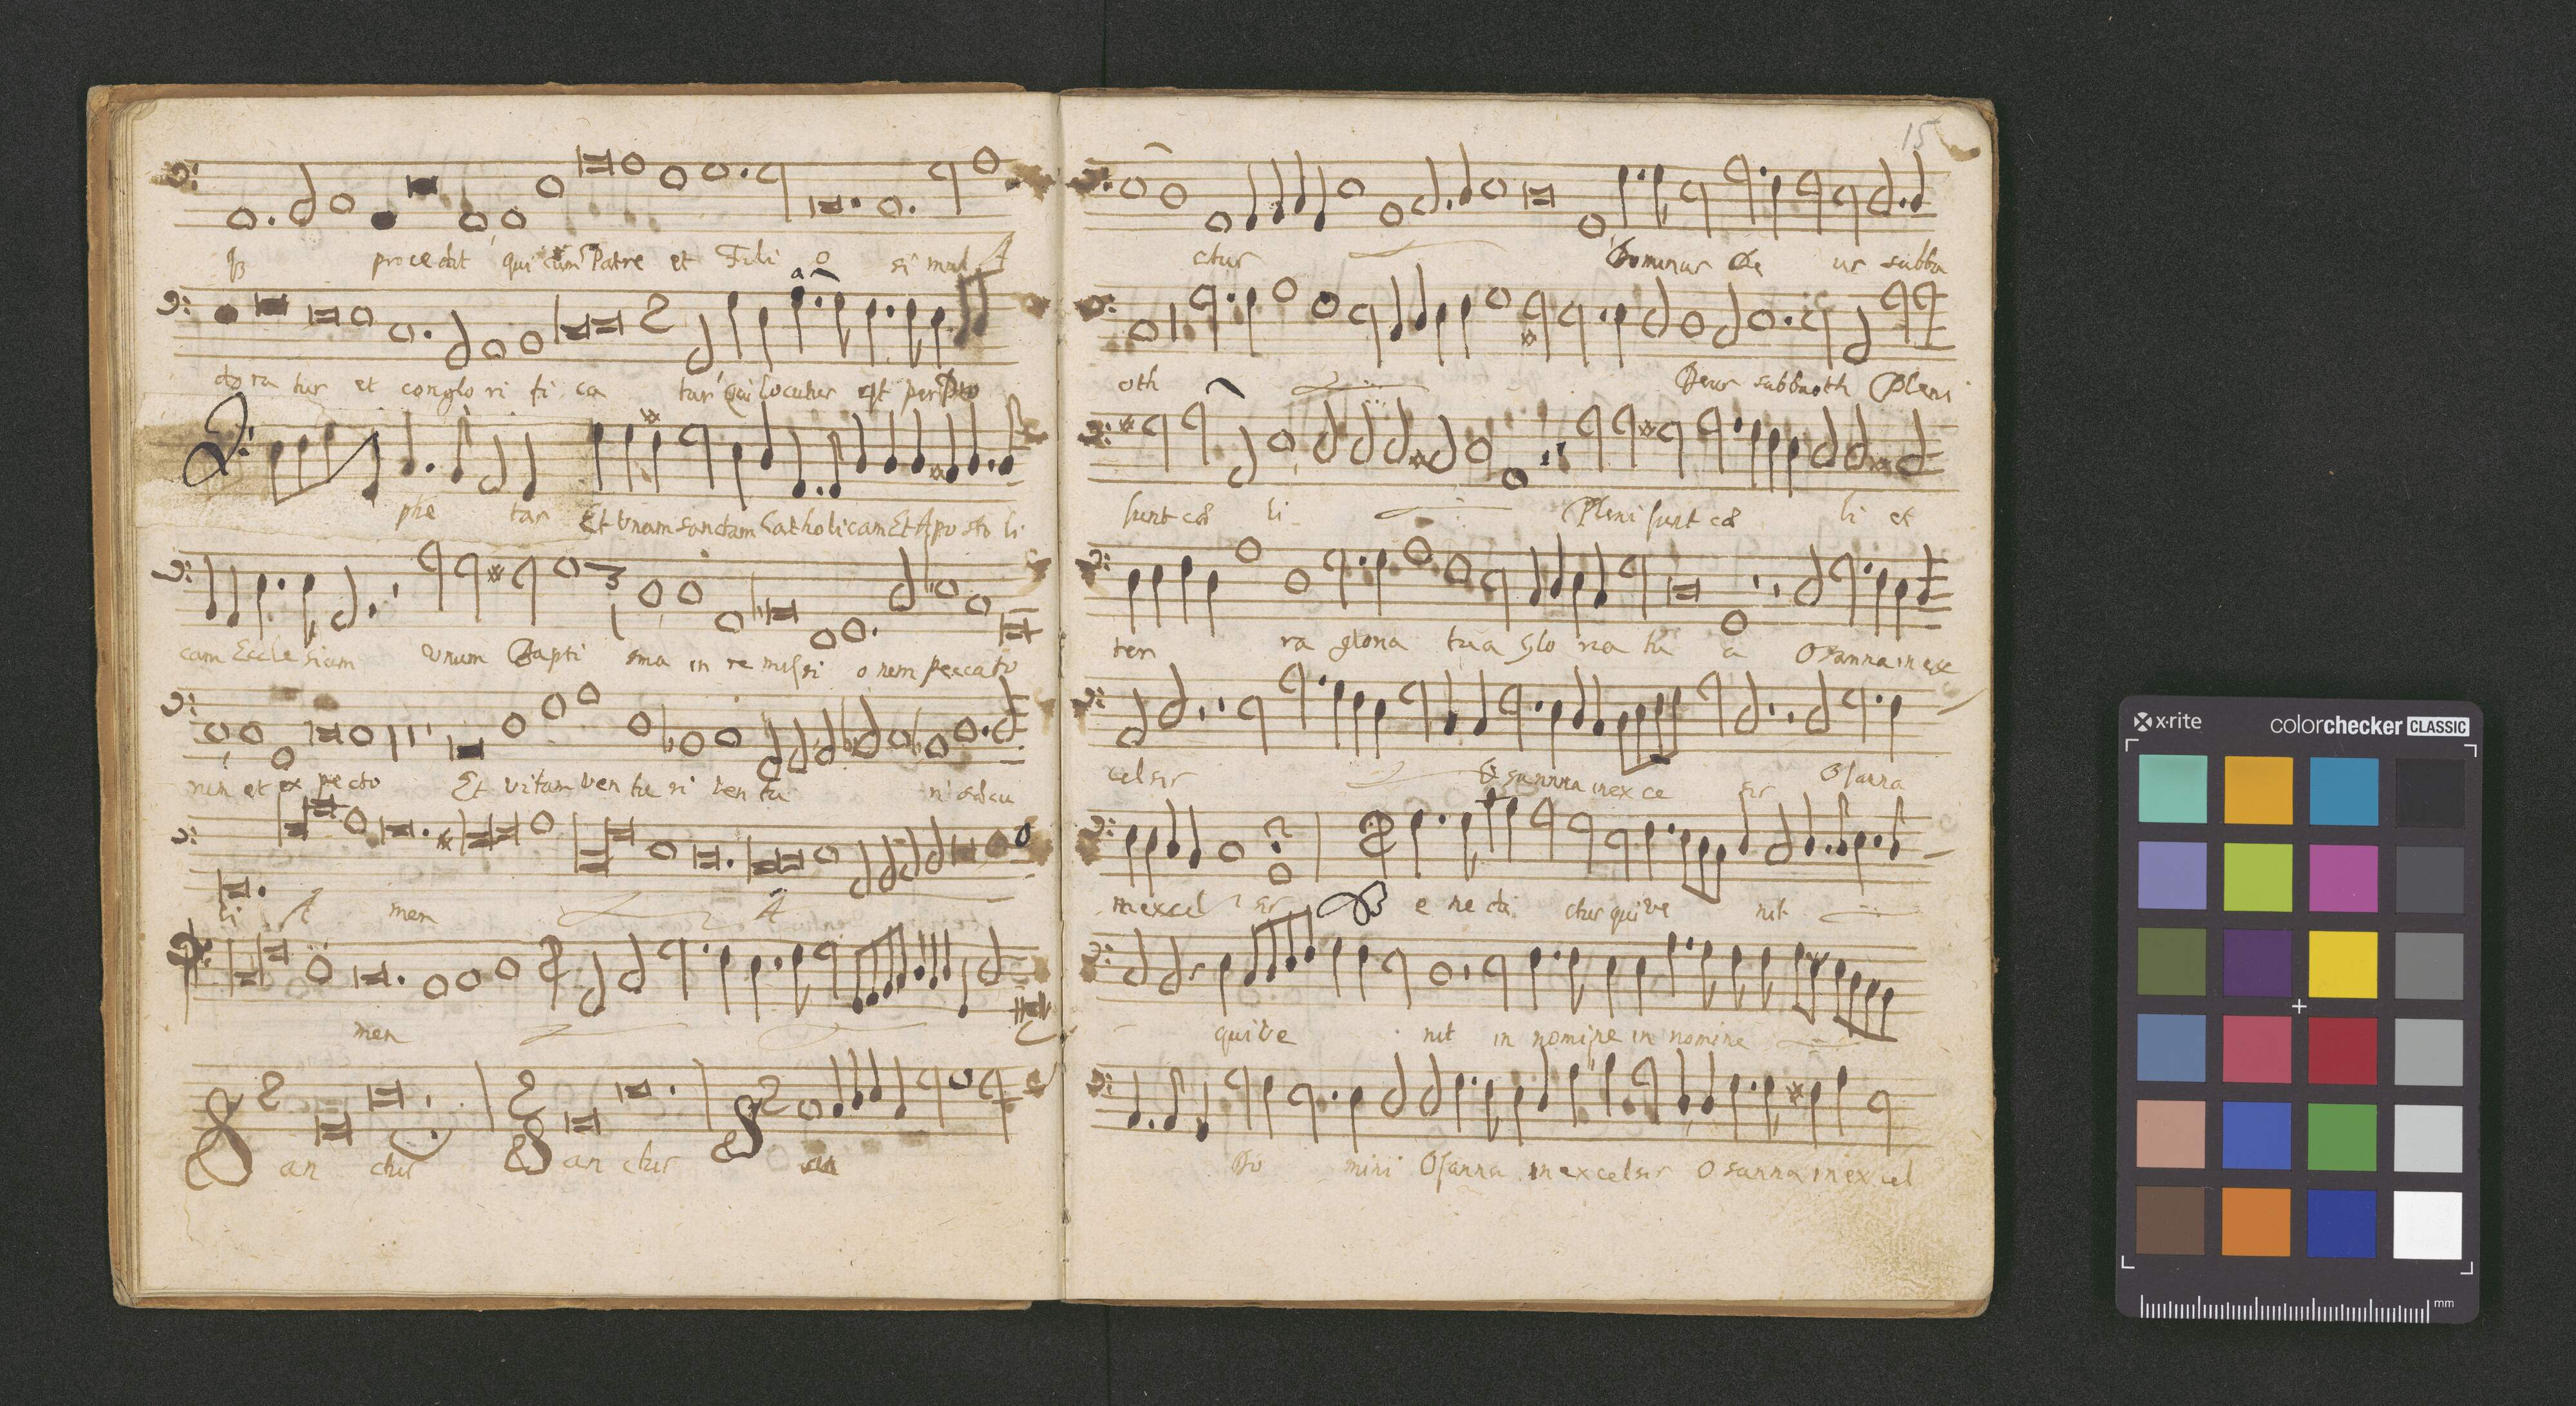 procedit qui cum Patre et Filio simul A
doratur et conglorifica tur qui locutus est per Pro
phe tas Et Unam sanctam Catholicam Et Aposto li
cam Ecclesiam Unum Bapti sma in remissi onem peccato
rum et expecto Et vitam ven tu ri ven tu ri sæcu
li A men A
men
San ctus San ctus San
15
ctus Dominus De us sabba
oth Deus sabbaoth Pleni
sunt cœ li Pleni sunt cœ li et
ter ra gloria tua Glo ria tu a Osanna in exce
celsis Osannna in exce sis Osanna
in excel sis Be ne di ctus qui ve nit
qui ve nit in nomine in nomine
Do mini Osanna in excelsis Osanna in excel
x-rite colorchecker CLASSIC
mm